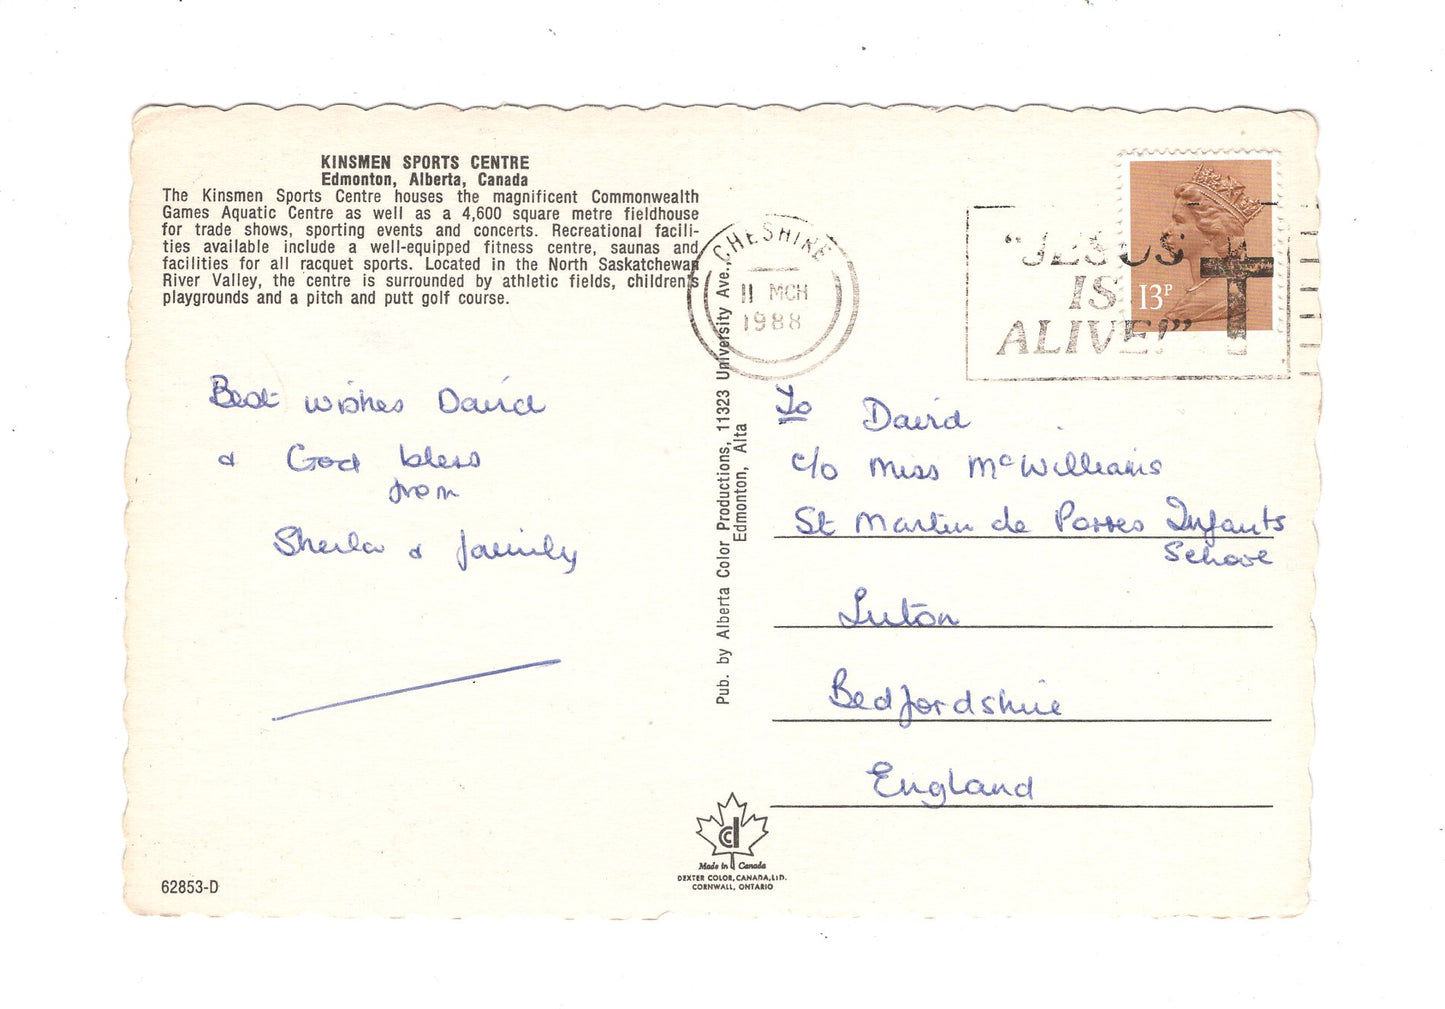 KINSMEN SPORTS CENTRE
Edmonton, Alberta, Canada
The Kinsmen Sports Centre houses the magnificent Commonwealth
Games Aquatic Centre as well as a 4,600 square metre fieldhouse
for trade shows, sporting events and concerts. Recreational facili-
ties available include a well-equipped fitness centre, saunas and
facilities for all racquet sports. Located in the North Saskatchewan
River Valley, the centre is surrounded by athletic fields, children's
playgrounds and a pitch and putt golf course.
Best wishes David
& God bless
from
Sheila & family
62853-D
Pub. by Alberta Color Productions, 11323 University Ave.,
Edmonton, Alta
CHESHIRE
11 MCH
1988
"JESUS
IS
ALIVE!"
13P
To David
c/o Miss McWilliams
St Martin de Porres Infants
School
Luton
Bedfordshire
England
cd
Made in Canada
DEXTER COLOR, CANADA, LTD.
CORNWALL, ONTARIO